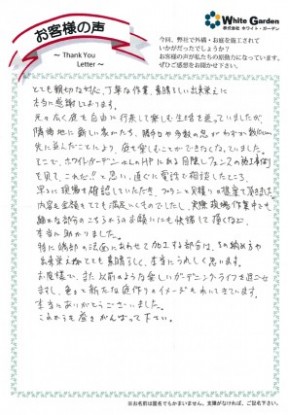 お客様の声
〜 Thank You
Letter 〜
White Garden
株式会社 ホワイト・ガーデン
今回、弊社で外構・お庭を施工されて
いかがだったでしょうか?
お客様の声が私たちの原動力になっています。
ぜひご感想をお聞かせ下さい。
とても親切な対応、丁寧な作業、素晴らしい出来栄えに
本当に感謝しております。
元々広く庭を自由に行来して愛しむ生活を送っていましたが
隣接地に新しい家がたち、
庭を楽しむことができなくなっていました。
そこで、ホワイトガーデンさんのHPにある目隠しフェンスの施工事例
を見て、これだ!!と思い、直ぐに電話で相談したところ
早々に現場を確認していただき、プランの見積りの提案で
内容も金額もとても満足いくものでしたし、実際現場作業中でも
細かな部分のこちらからのお願いにも快諾して頂くなど、
本当に助かりました。
特に
出来栄えがとても素晴らしく、本当にうれしく思います。
お陰様で、また以前のような楽しいガーデニングライフを過ごせ
ますし、色々と新たな庭作りのイメージもわいてきています。
本当にありがとうございました。
これからも がんばって下さい。
※お名前は匿名でもかまいません。支障がなければ、ご記名下さい。